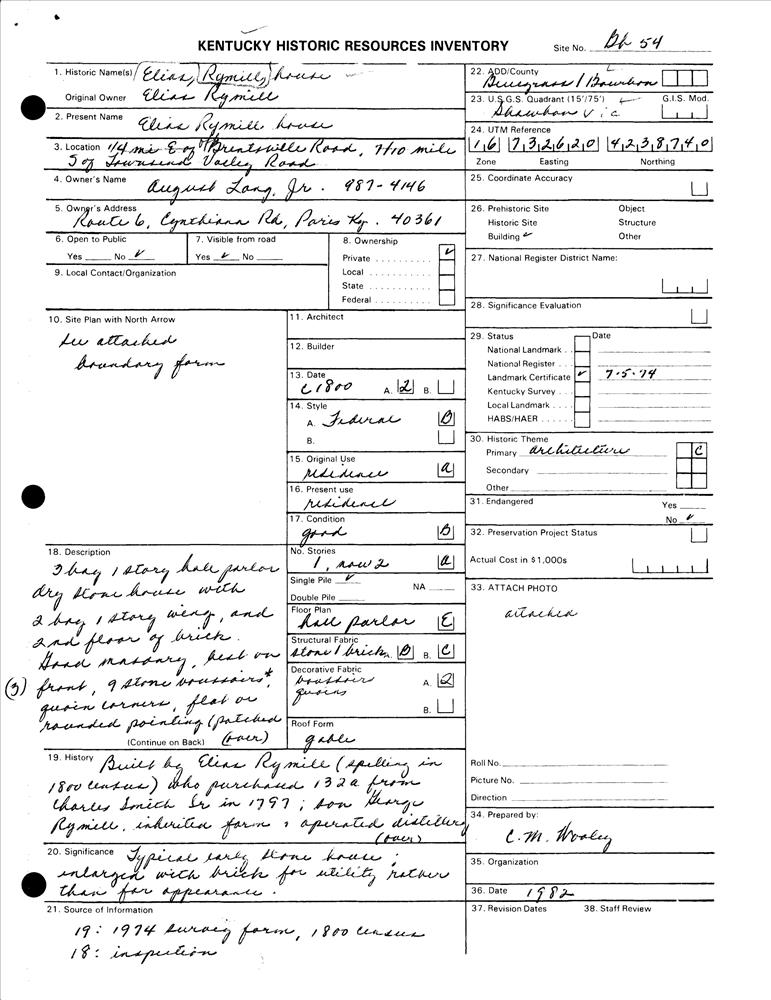 KENTUCKY HISTORIC RESOURCES INVENTORY
Site No. Bb 54
1. Historic Name(s) Elias Rymill house
Original Owner Elias Rymill
2. Present Name Elias Rymill house
3. Location 1/4 mi E of Brentsville Road, 7/10 mile
S of Townsend Valley Road
4. Owner's Name August Lang, Jr. 987-4146
5. Owner's Address
Route 6, Cynthiana Rd, Paris Ky. 40361
6. Open to Public
Yes No ✓
7. Visible from road
Yes ✓ No
8. Ownership
Private ✓
Local
State
Federal
9. Local Contact/Organization
10. Site Plan with North Arrow
see attached
boundary form
11. Architect
12. Builder
13. Date
c1800 A. 2 B.
14. Style
A. Federal B
B.
15. Original Use
residence A
16. Present use
residence
17. Condition
good B
18. Description
3 bay 1 story hall parlor
dry stone house with
2 bay 1 story wing, and
2nd floor of brick.
Good masonry, best on
(3) front, 9 stone voussoirs*,
quoin corners, flat or
rounded pointing (patched
(Continue on Back) (over)
No. Stories
1, now 2 A
Single Pile ✓ NA
Double Pile
Floor Plan
hall parlor E
Structural Fabric
stone / brick A. D B. C
Decorative Fabric
voussoirs A. 2
quoins
B.
Roof Form
gable
19. History Built by Elias Rymill (spelling in
1800 census) who purchased 132a from
Charles Smith Sr in 1797; son George
Rymill inherited farm & operated distillery
(over)
20. Significance Typical early stone house;
enlarged with brick for utility rather
than for appearance.
21. Source of Information
19: 1974 survey form, 1800 census
18: inspection
22. ADD/County
Bluegrass / Bourbon
23. U.S.G.S. Quadrant (15'/75') G.I.S. Mod.
Shawhan Vic
24. UTM Reference
16 732620 4238740
Zone Easting Northing
25. Coordinate Accuracy
26. Prehistoric Site Object
Historic Site Structure
Building ✓ Other
27. National Register District Name:
28. Significance Evaluation
29. Status Date
National Landmark
National Register
Landmark Certificate ✓ 7-5-74
Kentucky Survey
Local Landmark
HABS/HAER
30. Historic Theme
Primary architecture C
Secondary
Other
31. Endangered Yes
No ✓
32. Preservation Project Status
Actual Cost in $1,000s
33. ATTACH PHOTO
attached
Roll No.
Picture No.
Direction
34. Prepared by:
C. M. Wooley
35. Organization
36. Date 1982
37. Revision Dates 38. Staff Review